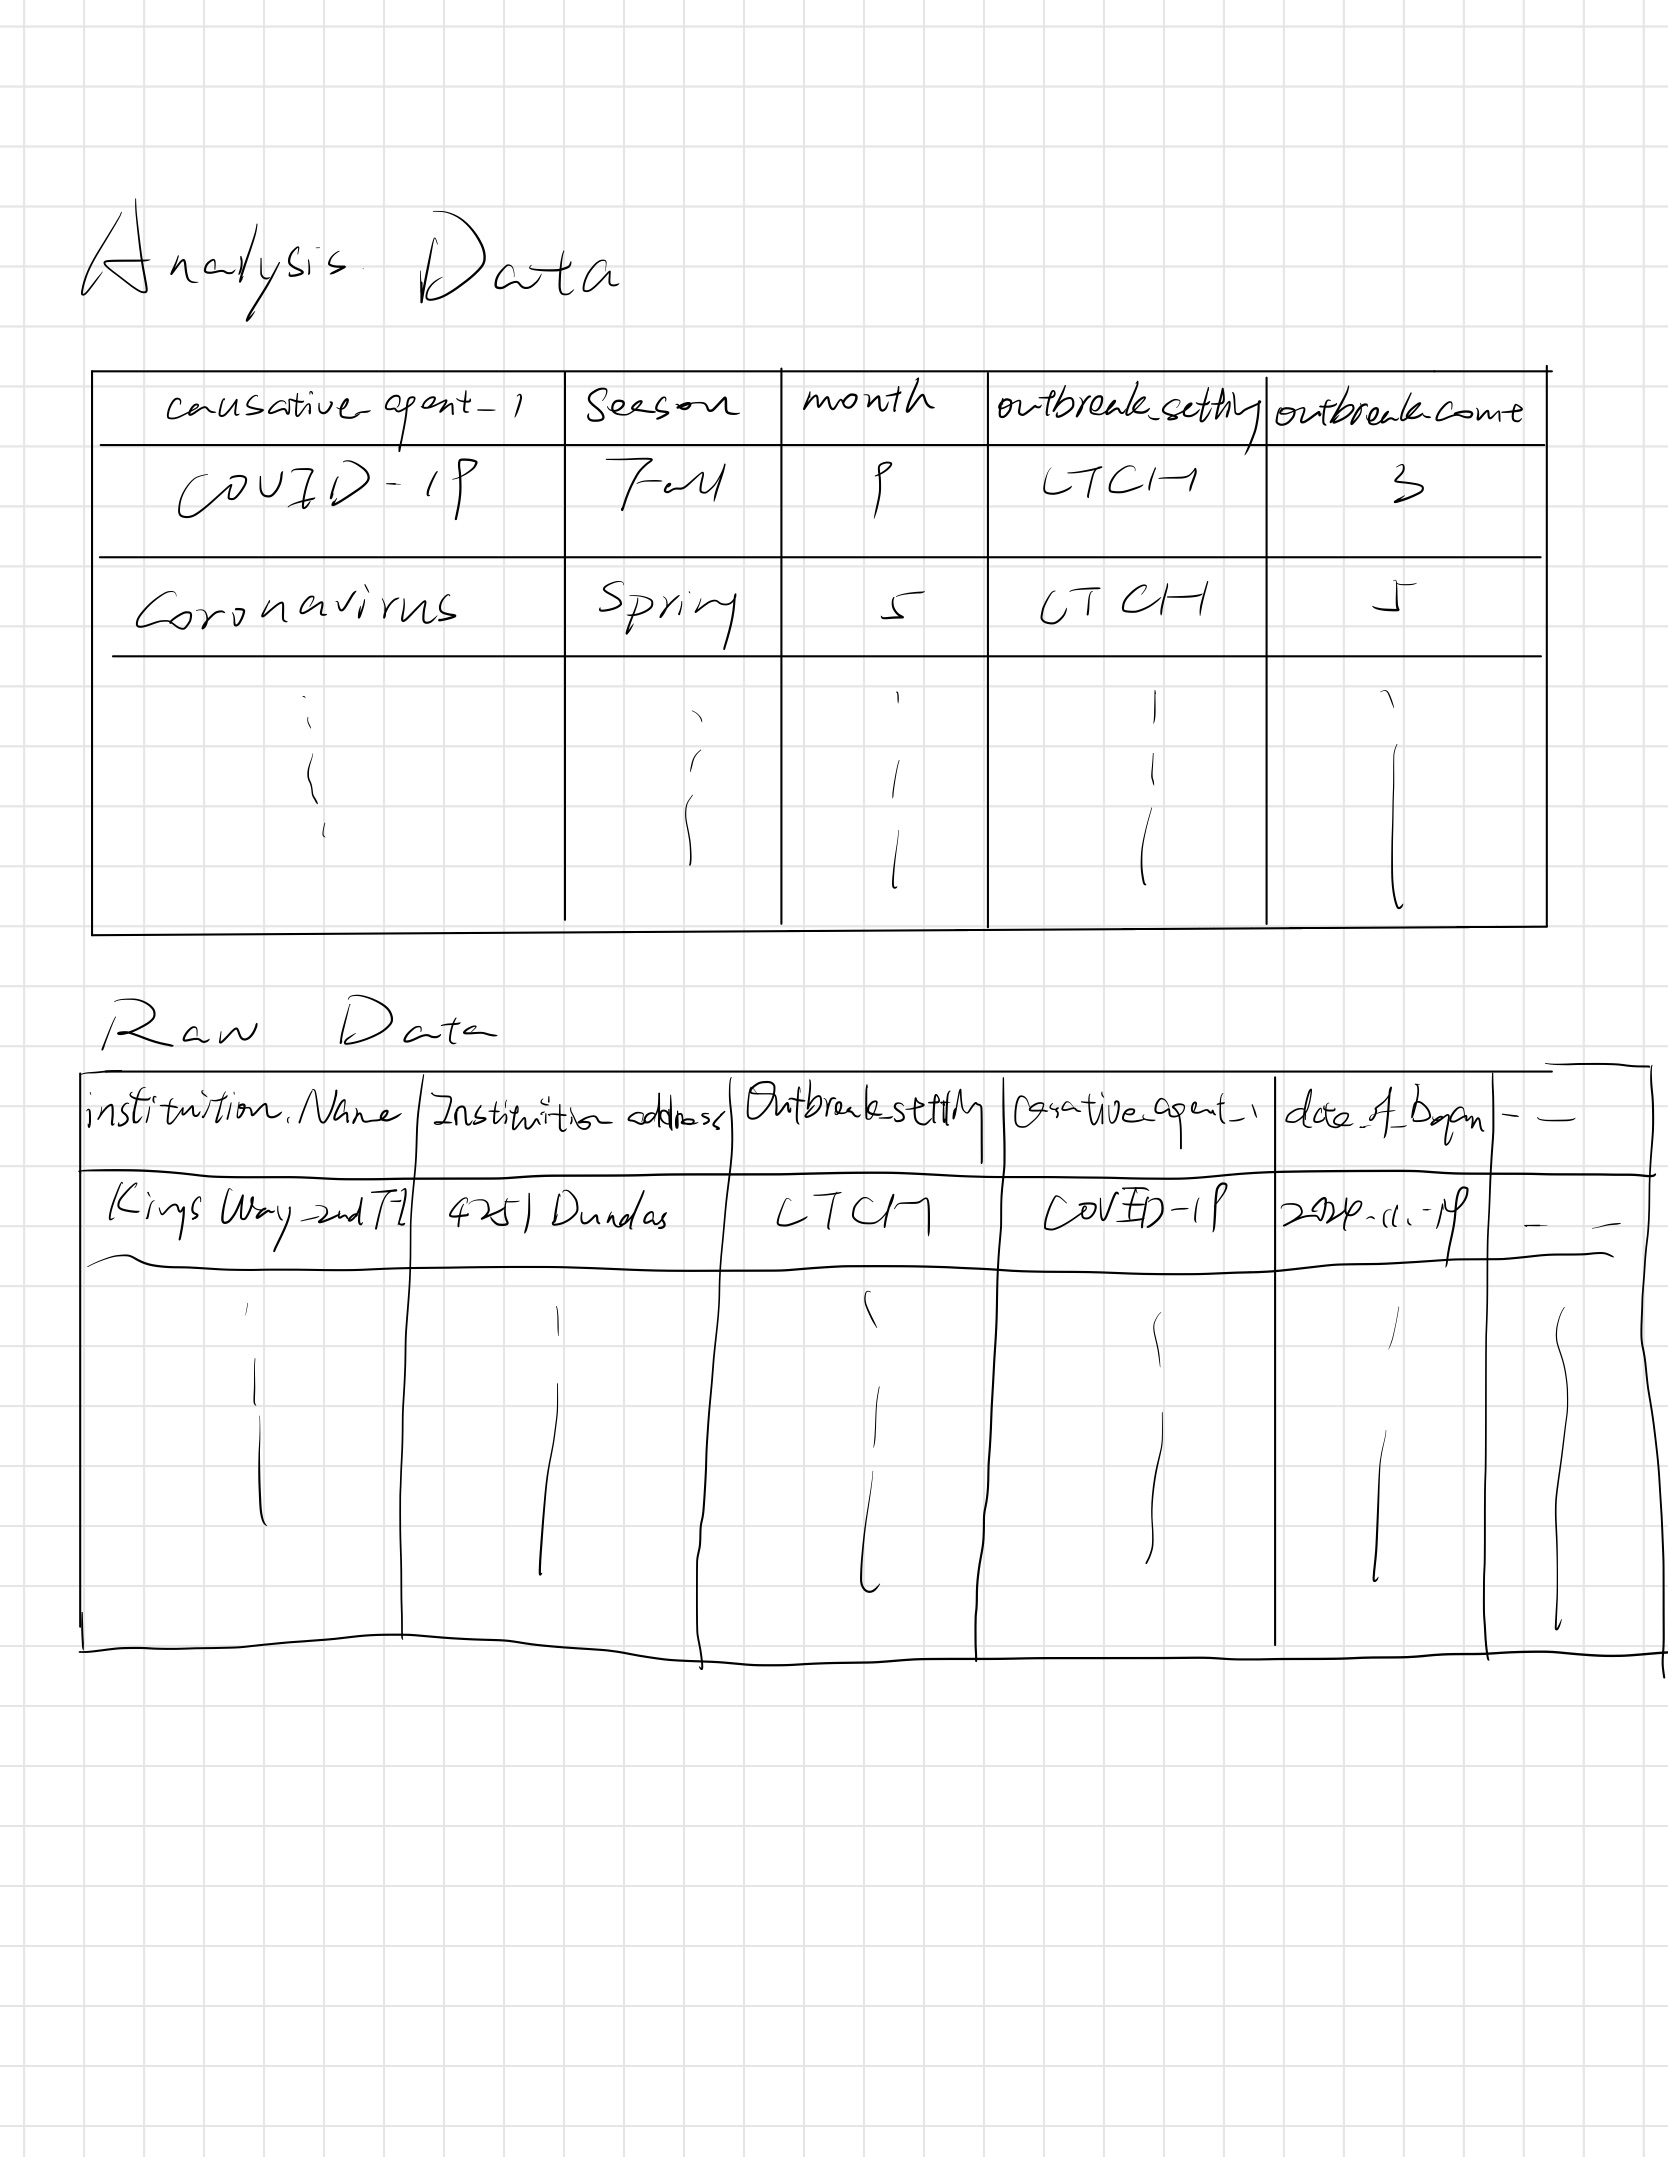 Analysis Data
causative_agent_1 Season month outbreak_setting outbreak_count
COVID-19 Fall 9 LTCH 3
Coronavirus Spring 5 LTCH 5
Raw Data
instituition.Name Instituition address Outbreak_setting causative_agent_1 date_of_Began
Kings Way 2nd 4251 Dundas LTCH COVID-19